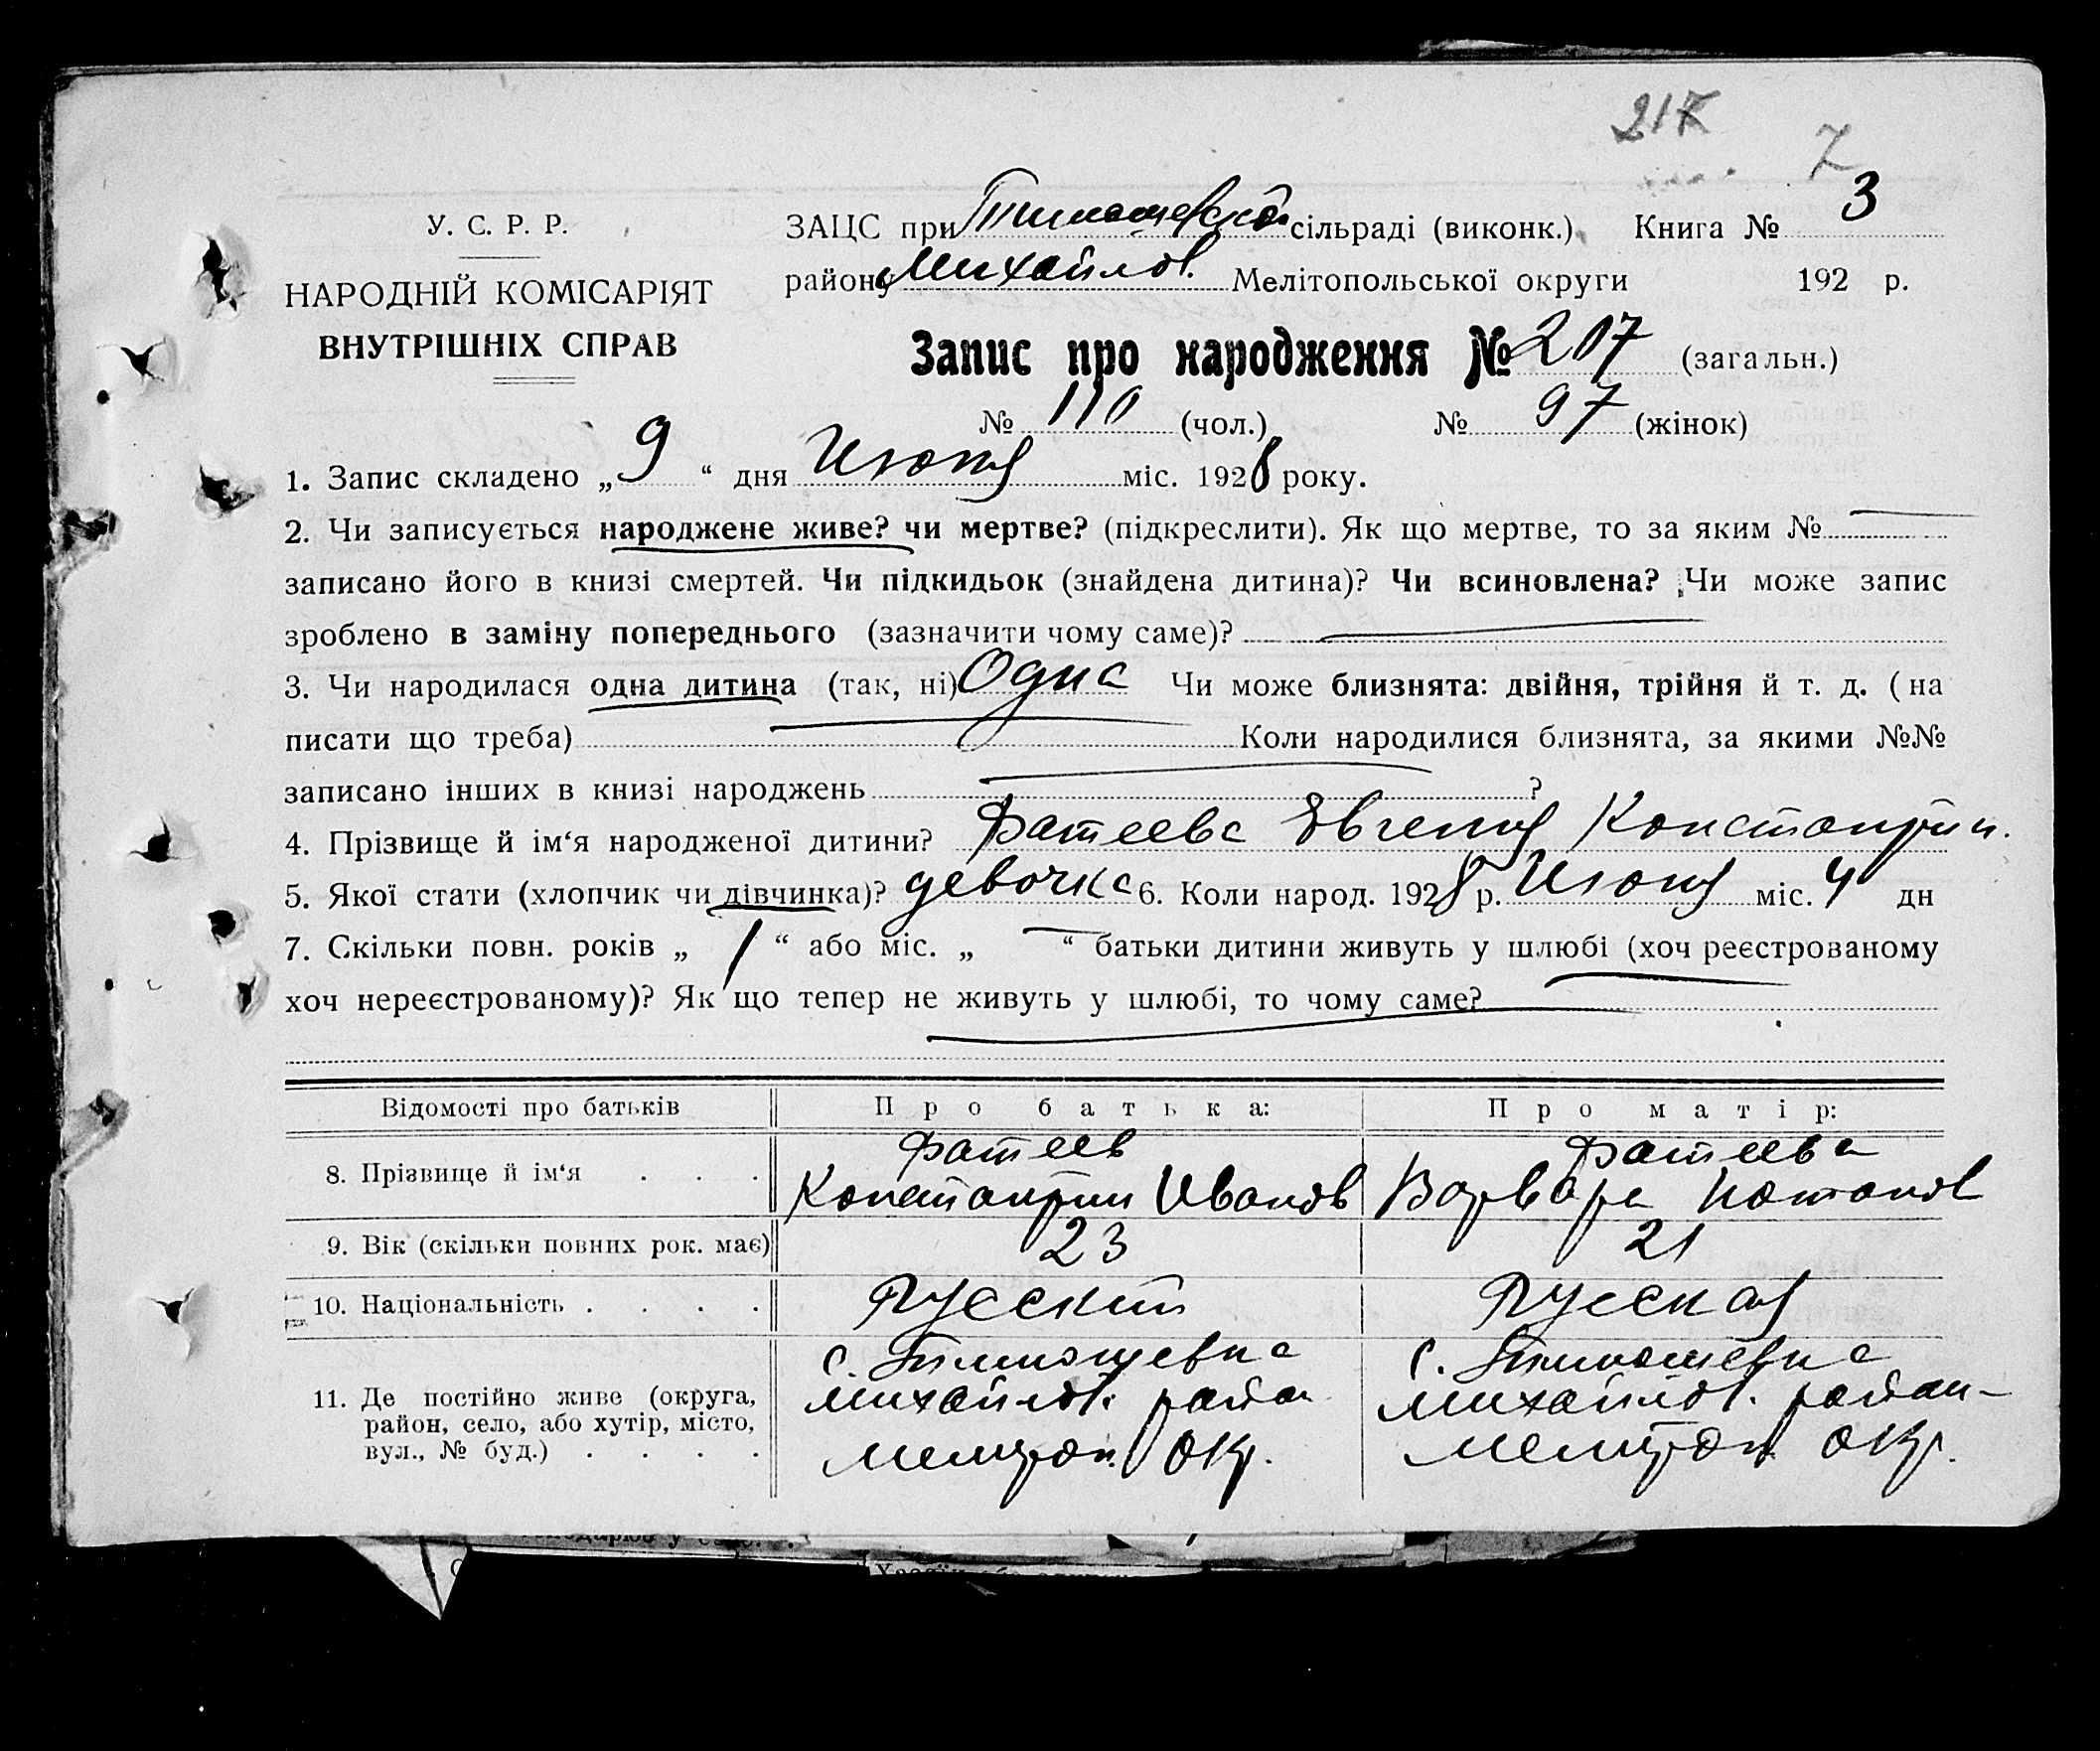 217
7
У. С. Р. Р.
НАРОДНІЙ КОМІСАРІЯТ
ВНУТРІШНІХ СПРАВ
ЗАЦС при Тимошевской сільраді (виконк.) Книга № 3
району Михайлов. Мелітопольської округи 192 р.
Запис про народження № 207 (загальн.)
№ 110 (чол.) № 97 (жінок)
1. Запис складено „ 9 “ дня Июня міс. 1928 року.
2. Чи записується народжене живе? чи мертве? (підкреслити). Як що мертве, то за яким №
записано його в книзі смертей. Чи підкидьок (знайдена дитина)? Чи всиновлена? Чи може запис
зроблено в заміну попереднього (зазначити чому саме)?
3. Чи народилася одна дитина (так, ні) Одна Чи може близнята: двійня, трійня й т. д. (на
писати що треба) Коли народилися близнята, за якими №№
записано інших в книзі народжень ?
4. Прізвище й ім‘я народженої дитини? Фатеева Евгения Константин.
5. Якої стати (хлопчик чи дівчинка)? девочка 6. Коли народ. 1928 р. Июня міс. 4 дн
7. Скільки повн. років „ 1 “ або міс. „ “ батьки дитини живуть у шлюбі (хоч реєстрованому
хоч нереєстрованому)? Як що тепер не живуть у шлюбі, то чому саме?
Відомості про батьків Про батька: Про матір:
8. Прізвище й ім‘я . . . Фатеев Константин Иванов Фатеева Варвара Потапов
9. Вік (скільки повних рок. має) 23 21
10. Національність . . . . Русский Русская
11. Де постійно живе (округа,
район, село, або хутір, місто,
вул., № буд.) . . . .
с. Тимошевка
Михайлов. район
Мелитоп. окр.
с. Тимошевка
Михайлов. район
Мелитоп. окр.